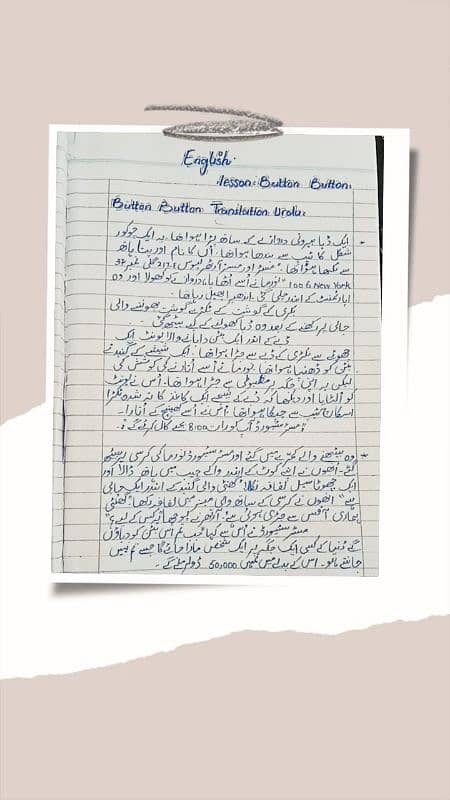 English.
lesson: Button Button.
Button Button Translation Urdu:
ایک ڈبا بیرونی دروازے کے ساتھ پڑا ہوا تھا۔ یہ ایک چوکور
شکل کا ٹیپ سے بندھا ہوا تھا۔ اُس کا نام اور پتا ہاتھ
سے لکھا ہوا تھا۔ "مسٹر اور مسز آرتھر لیوس، 217
New York 10016" نورما نے اُسے اُٹھایا، دروازے کو کھولا اور وہ
اپارٹمنٹ کے اندر چلی گئی۔ اندھیرا پھیل رہا تھا۔
بکری کے گوشت کے ٹکڑے گوشت بھوننے والی
جالی پر رکھنے کے بعد وہ ڈبا کھولنے کے لیے بیٹھ گئی۔
ڈبے کے اندر ایک بٹن دبانے والا یونٹ ایک
چھوٹے سے لکڑی کے ڈبے سے جڑا ہوا تھا۔ ایک شیشے کے گنبد نے
بٹن کو ڈھانپا ہوا تھا۔ نورما نے اُسے اُتارنے کی کوشش کی
لیکن یہ اپنی جگہ پر مضبوطی سے جڑا ہوا تھا۔ اُس نے یونٹ
کو اُلٹایا اور دیکھا کہ ڈبے کے نیچے ایک کاغذ کا تہہ شدہ ٹکڑا
اسکاچ ٹیپ سے چپکا ہوا تھا۔ اُس نے اُسے کھینچ کے اُتارا۔
"مسٹر سٹیورڈ آپ کو رات 8:00 بجے کال کریں گے۔"
وہ بیٹھنے والے کمرے میں گئے اور مسٹر سٹیورڈ نورما کی کرسی پر بیٹھ
گئے۔ اُنھوں نے اپنے کوٹ کے اندر والے جیب میں ہاتھ ڈالا اور
ایک چھوٹا سیل لفافہ نکالا "گھنٹی والی گنبد کے اندر ایک چابی
ہے" اُنھوں نے کرسی کے ساتھ والی میز میں لفافہ رکھا "گھنٹی
ہماری آفس سے جڑی ہوئی ہے"۔ آرتھر نے پوچھا "یہ کس کے لیے؟"
مسٹر سٹیورڈ نے اُس سے کہا "جب تم اس بٹن کو دباؤں
گے دُنیا کے کسی ایک جگہ پر ایک شخص مارا جائے گا جسے تم نہیں
جانتے ہو۔ اس کے بدلے میں تمہیں 50,000 ڈولر ملے گے۔